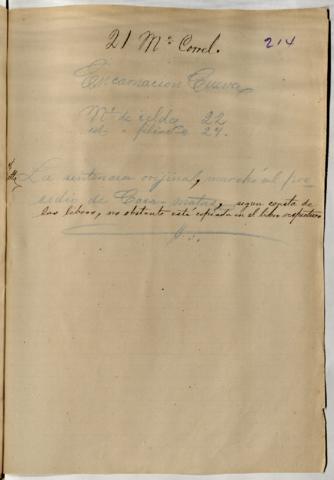 21 Mº Correl. 214
Encarnacion Cueva
Nº de celda 22
id. " filiacⁿ 27.
La sentencia orijinal, marchó al pre-
sidio de Casas-matas, segun consta de
los libros, no obstante está copiada en el libro respectivo